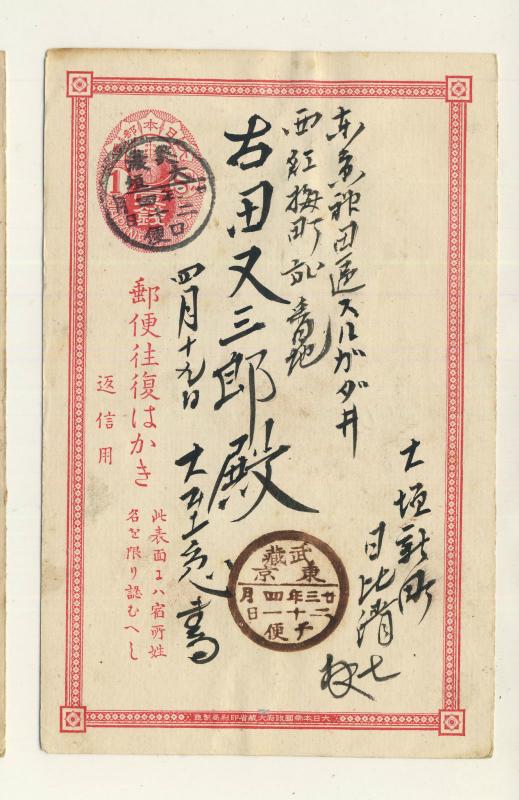 東京神田區スルガダ井
西紅梅町
番地
古田又三郎殿
四月十九日
大垣新町
日比清七
郵便往復はかき
返信用
此表面にハ宿所姓
名を限り認むへし
武藏
東京
廿三年四月
二十一日
チ便
美濃
大垣
大日本帝國政府大藏省印刷局製造